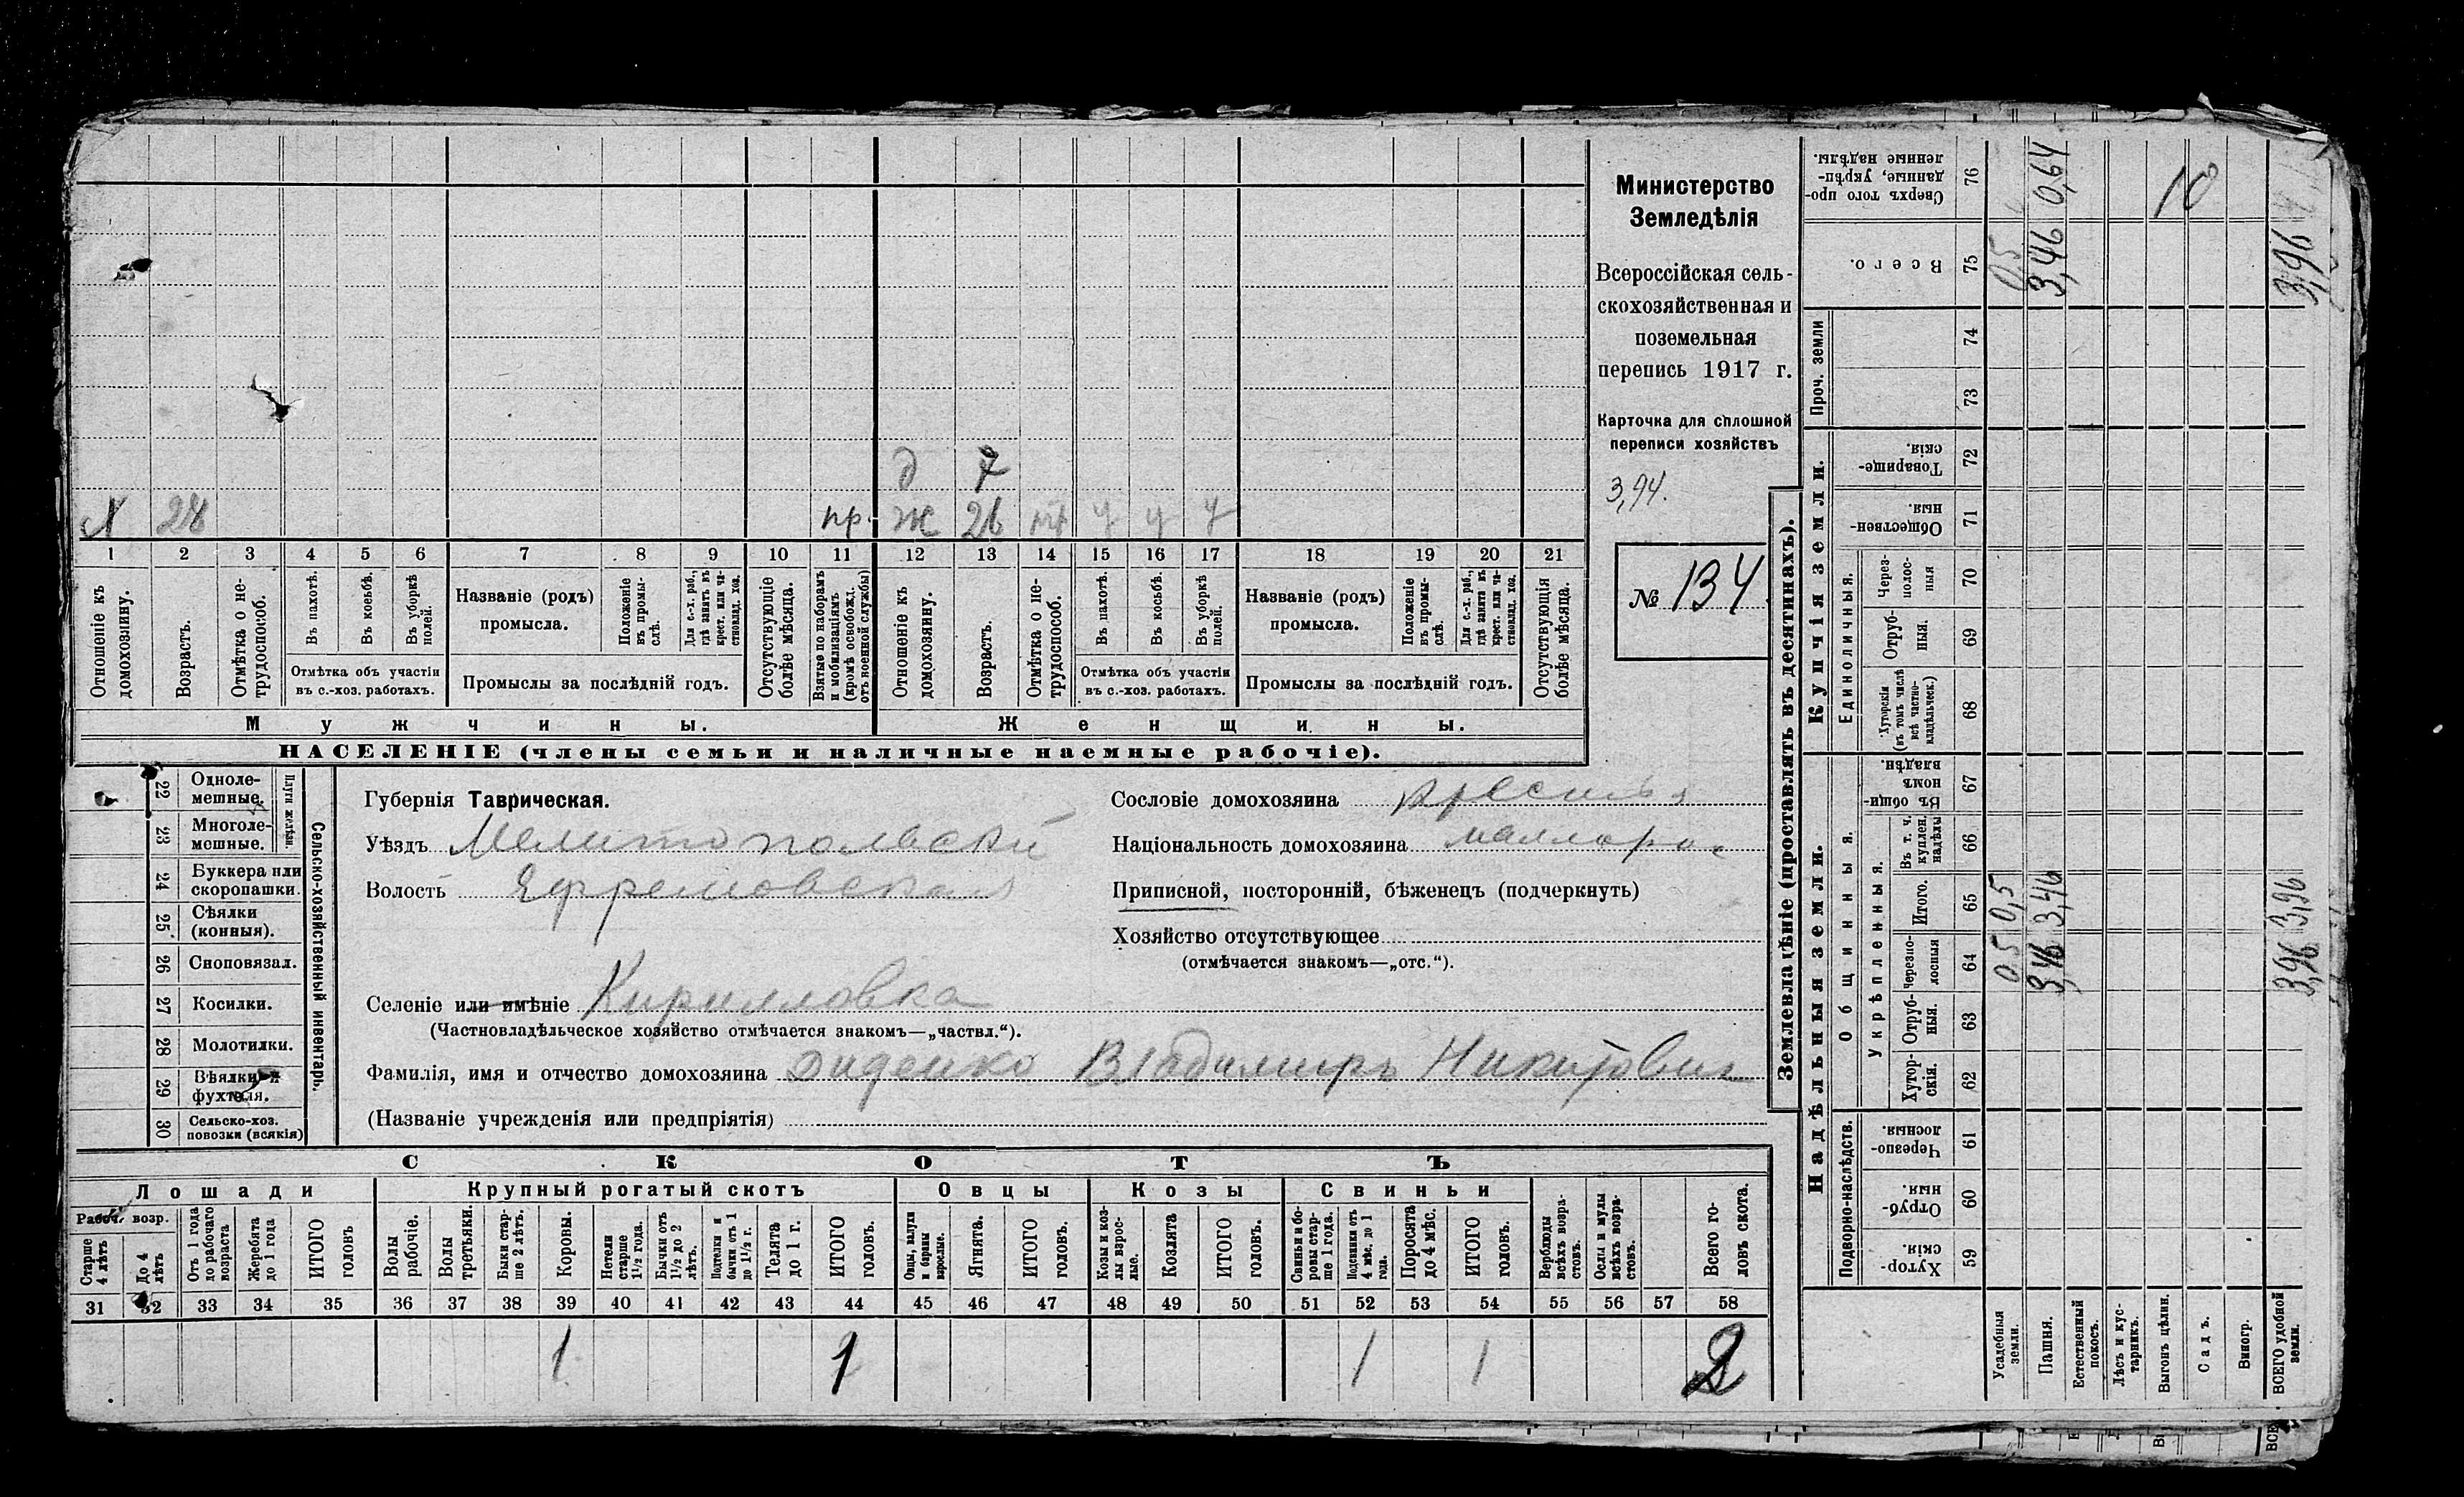 Министерство
Земледѣлія
Всероссійская сель-
скохозяйственная и
поземельная
перепись 1917 г.
Карточка для сплошной
переписи хозяйствъ
3,94.
№ 134
д 7
28 пр. ж 26 у у у
1 2 3 4 5 6 7 8 9 10 11 12 13 14 15 16 17 18 19 20 21
Отношеніе къ домохозяину.
Возрастъ.
Отмѣтка о не-трудоспособ.
Въ пахотѣ.
Въ косьбѣ.
Въ уборкѣ полей.
Отмѣтка объ участіи
въ с.-хоз. работахъ.
Названіе (родъ)
промысла.
Положеніе въ промы-слѣ.
Для с.-х. раб., гдѣ занятъ въ крест. или ча-стновлад. хоз.
Промыслы за послѣдній годъ.
Отсутствующіе болѣе мѣсяца.
Взятые по наборамъ и мобилизаціямъ (кромѣ освобожд. отъ военной службы)
Отношеніе къ домохозяину.
Возрастъ.
Отмѣтка о не-трудоспособ.
Въ пахотѣ.
Въ косьбѣ.
Въ уборкѣ полей.
Отмѣтка объ участіи
въ с.-хоз. работахъ.
Названіе (родъ)
промысла.
Положеніе въ промы-слѣ.
Для с.-х. раб., гдѣ занята въ крест. или ча-стновлад. хоз.
Промыслы за послѣдній годъ.
Отсутствующія болѣе мѣсяца.
Мужчины.
Женщины.
НАСЕЛЕНІЕ (члены семьи и наличные наемные рабочіе).
Сельско-хозяйственный инвентарь.
Плуги желѣзн.
22 Одноле-мешные.
23 Многоле-мешные.
24 Буккера или скоропашки.
25 Сѣялки (конныя).
26 Сноповязал.
27 Косилки.
28 Молотилки.
29 Вѣялки и фухтеля.
30 Сельско-хоз. повозки (всякія)
Губернія Таврическая.
Уѣздъ Мелитопольскій
Волость Ефремовская
Селеніе или имѣніе Кирилловка
(Частновладѣльческое хозяйство отмѣчается знакомъ—„частвл.“).
Фамилія, имя и отчество домохозяина Диденко Владимиръ Никитович
(Названіе учрежденія или предпріятія)
Сословіе домохозяина
Національность домохозяина
Приписной, посторонній, бѣженецъ (подчеркнуть)
Хозяйство отсутствующее
(отмѣчается знакомъ—„отс.“).
СКОТЪ
Лошади
Крупный рогатый скотъ
Овцы
Козы
Свиньи
Рабоч. возр.
Старше 4 лѣтъ
До 4 лѣтъ
Отъ 1 года до рабочаго возраста
Жеребята до 1 года
ИТОГО головъ
Волы рабочіе.
Волы третьяки.
Быки стар-ше 2 лѣтъ.
Коровы.
Нетели старше 1½ года.
Бычки отъ 1½ до 2 лѣтъ.
Подтелки и бычки отъ 1 до 1½ г.
Телята до 1 г.
ИТОГО головъ.
Овцы, валухи и бараны взрослые.
Ягнята.
ИТОГО головъ.
Козы и коз-лы взрос-лые.
Козлята
ИТОГО головъ.
Свиньи и бо-ровы стар-ше 1 года.
Подсвинки отъ 4 мѣс. до 1 года.
Поросята до 4 мѣс.
ИТОГО головъ.
Верблюды всѣхъ возра-стовъ.
Ослы и мулы всѣхъ возра-стовъ.
Всего го-ловъ скота.
31 32 33 34 35 36 37 38 39 40 41 42 43 44 45 46 47 48 49 50 51 52 53 54 55 56 57 58
1 1 1 1 2
Землевладѣніе (проставлять въ десятинахъ).
Купчія земли.
Надѣльныя земли.
Проч. земли
Единоличныя.
Общинныя.
Укрѣпленныя.
Подворно-наслѣдств.
76 Сверхъ того про-данные, укрѣп-ленные надѣлы.
75 Всего.
74
73
72 Товарище-скія.
71 Обществен-ныя.
70 Через-полос-ныя
69 Отруб-ныя.
68 Хуторскія (въ томъ числѣ всѣ частно-владѣльческ.)
67 Въ общин-номъ владѣн.
66 Въ т. ч. куплен. надѣлы
65 Итого.
64 Черезпо-лосныя
63 Отруб-ныя.
62 Хутор-скія.
61 Черезпо-лосныя.
60 Отруб-ныя.
59 Хутор-скія.
Усадебныя земли. 05 0,5 05
Пашня. 3,46 3,46 3,46 0,64
Естественный покосъ.
Лѣсъ и кус-тарникъ.
Выгонъ цѣлин. 10
Садъ.
Виногр.
ВСЕГО удобной земли. 3,96 3,96 3,96